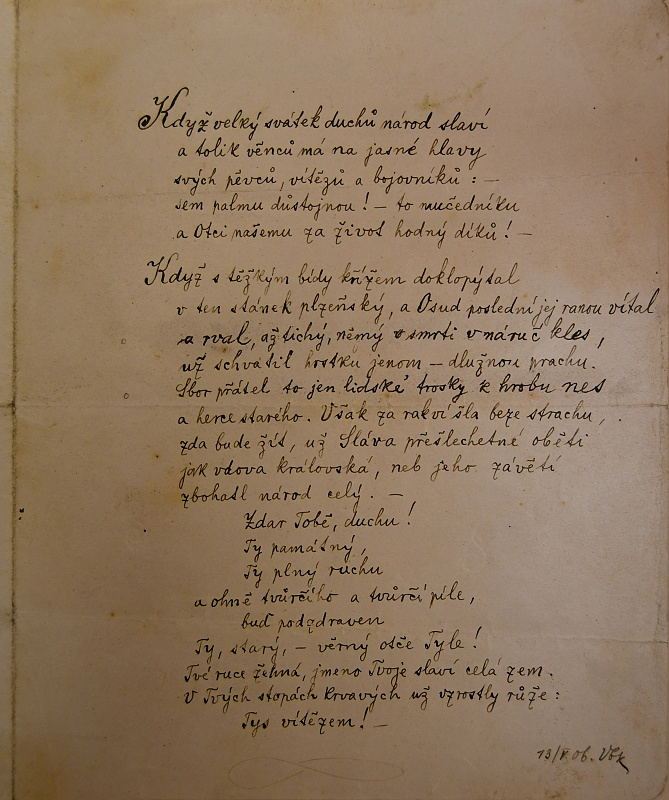 Když velký svátek duchů národ slaví
a tolik věnců má na jasné hlavy
svých pěvců, vítězů a bojovníků : —
sem palmu důstojnou ! — to mučedníku
a Otci našemu za život hodný díků ! —
Když s těžkým bídy křížem doklopýtal
v ten stánek plzeňský, a Osud poslední jej ranou vítal
a rval, až tichý, němý v smrti v náruč kles,
už schvátil hrstku jenom — dlužnou prachu.
Sbor přátel to jen lidské trosky k hrobu nes
a herce starého. Však za rakví šla beze strachu,
zda bude žít, už Sláva přešlechetné oběti
jak vdova královská, neb jeho závětí
zbohatl národ celý. —
Zdar Tobě, duchu !
Ty památný,
Ty plný ruchu
a ohně tvůrčího a tvůrčí píle,
buď pozdraven
Ty, starý, — věrný otče Tyle !
Tvé ruce žehná, jmeno Tvoje slaví celá zem.
V Tvých stopách krvavých už vzrostly růže :
Tys vítězem ! —
13/V. 06.